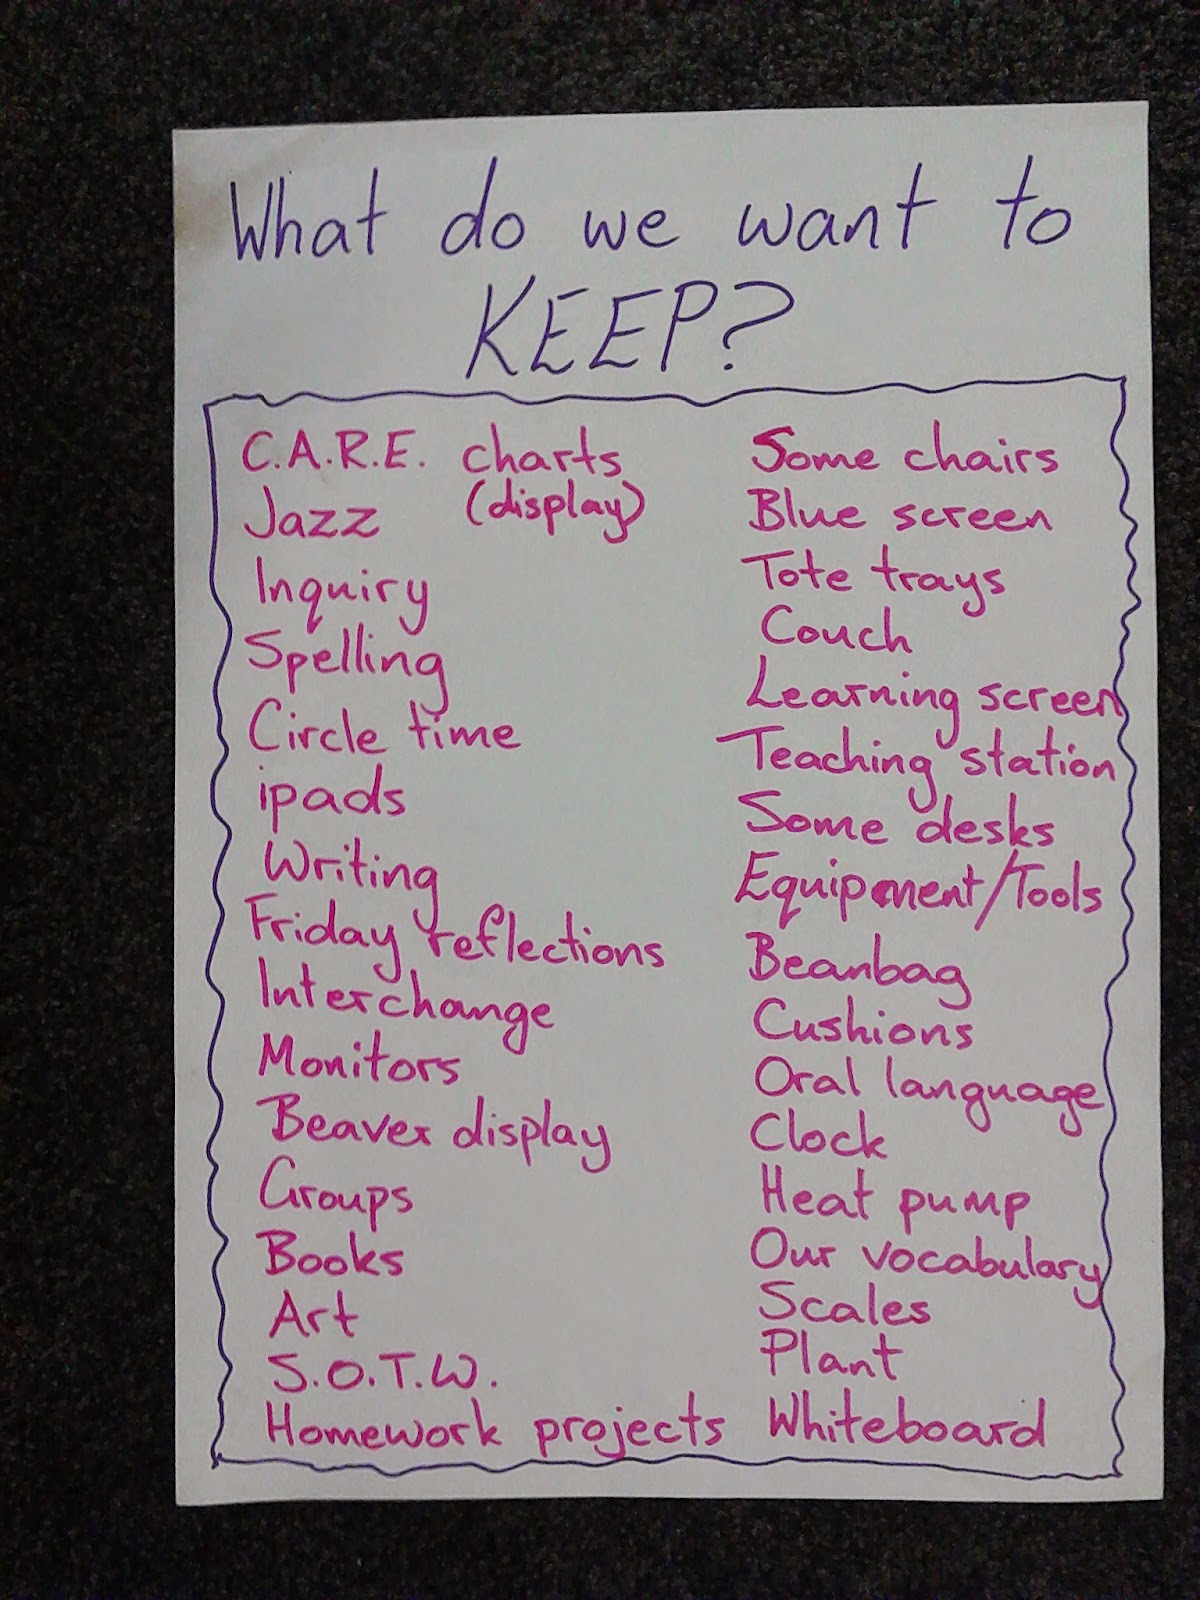 What do we want to
KEEP?
C.A.R.E. charts
(display)
Jazz
Inquiry
Spelling
Circle time
ipads
Writing
Friday reflections
Interchange
Monitors
Beaver display
Groups
Books
Art
S.O.T.W.
Homework projects
Some chairs
Blue screen
Tote trays
Couch
Learning screen
Teaching station
Some desks
Equipment/Tools
Beanbag
Cushions
Oral language
Clock
Heat pump
Our vocabulary
Scales
Plant
Whiteboard